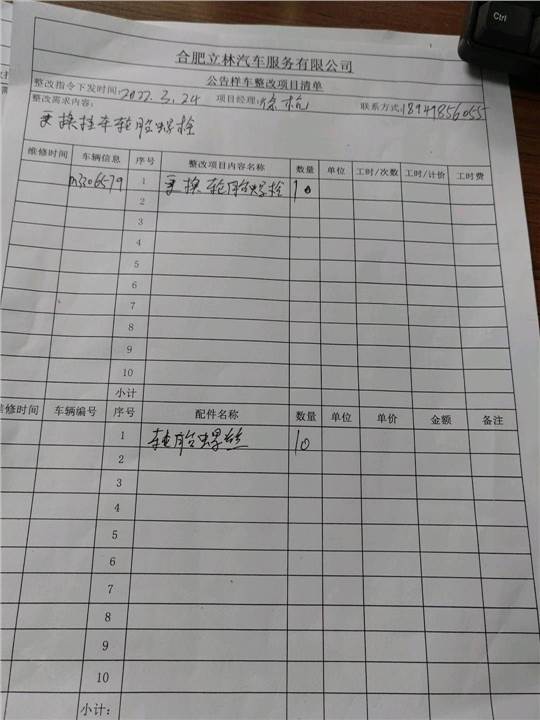 合肥立林汽车服务有限公司
公告样车整改项目清单
整改指令下发时间:2022.3.24 项目经理: 联系方式:18949856055
整改需求内容:
更换挂车轮胎螺栓
维修时间 车辆信息 序号 整改项目内容名称 数量 单位 工时/次数 工时/计价 工时费
1 更换轮胎螺栓 10
2
3
4
5
6
7
8
9
10
小计
维修时间 车辆编号 序号 配件名称 数量 单位 单价 金额 备注
1 轮胎螺丝 10
2
3
4
5
6
7
8
9
10
小计:
Ctrl